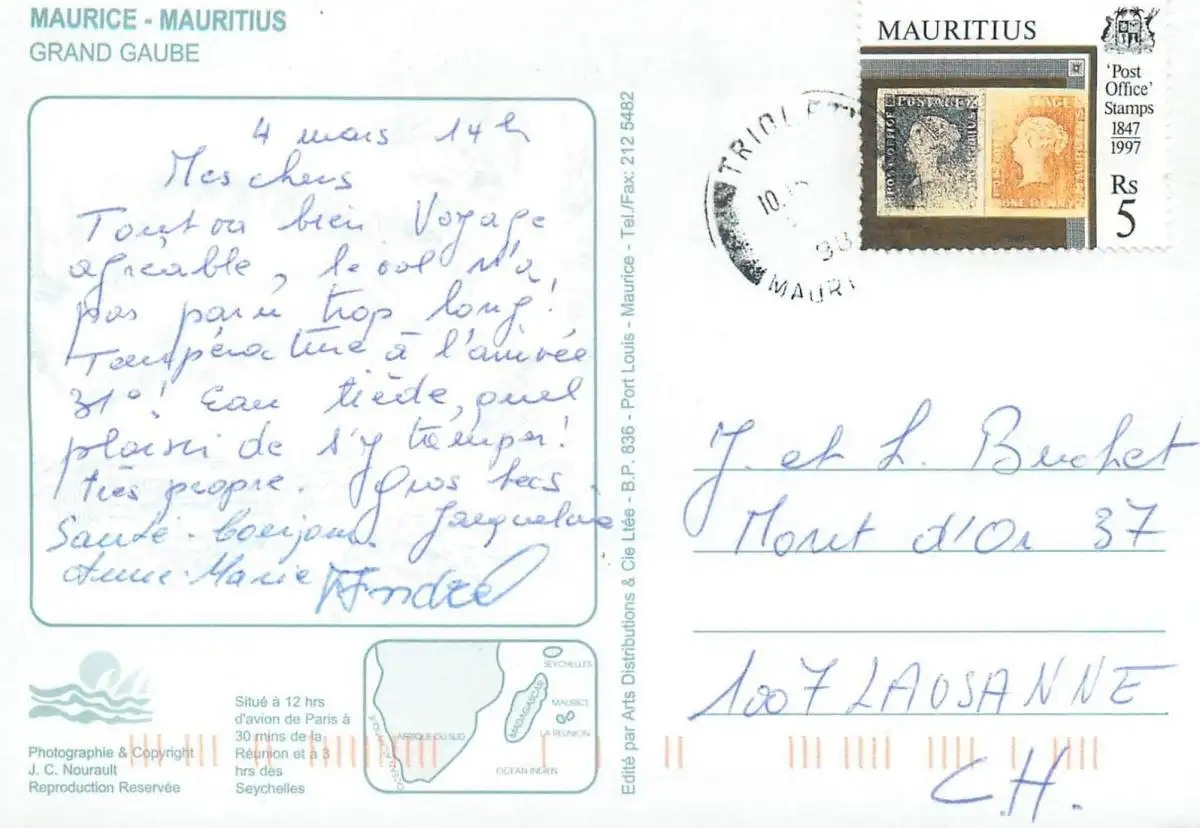 MAURICE - MAURITIUS
GRAND GAUBE
4 mars 14h
Mes chers
Tout va bien Voyage
agréable, le vol n'a
pas paru trop long!
Température à l'arrivée
31°! Eau tiède, quel
plaisir de s'y tremper!
très propre. Gros becs
Jacqueline
Santé - bonjour
Anne-Marie André
Situé à 12 hrs
d'avion de Paris à
30 mins de la
Réunion et à 3
hrs des
Seychelles
Photographie & Copyright
J. C. Nourault
Reproduction Reservée
SEYCHELLES
MADAGASCAR
MAURICE
LA REUNION
AFRIQUE DU SUD
OCEAN ATLANTIQUE
OCEAN INDIEN
Edité par Arts Distributions & Cie Ltée - B.P. 836 - Port Louis - Maurice - Tel./Fax: 212 5482
MAURITIUS
'Post
Office'
Stamps
1847
1997
Rs
5
POSTAGE
POST OFFICE
ONE PENNY
TRIOLET
10.
98
MAURI
J. et L. Buchet
Mont d'Or 37
1007 LAUSANNE
C.H.